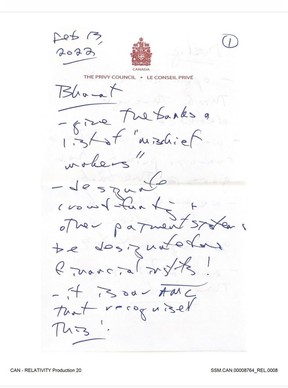 Feb 13,
2022
①
CANADA
THE PRIVY COUNCIL • LE CONSEIL PRIVÉ
Bharat
- give the banks a
list of "mischief
makers"
- designate
crowdfunding +
other payment systems
be designated
financial
- it is our AML
that recognised
this!
CAN - RELATIVITY Production 20
SSM.CAN.00008764_REL.0008